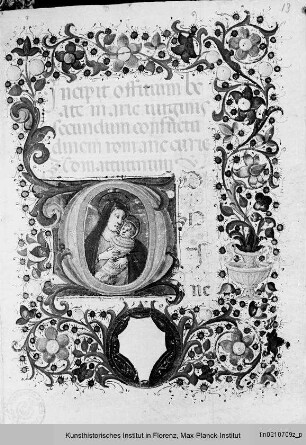 13
Incipit offitium be
ate marie virginis
secundum consuetu
dinem romane curie
ne
Kunsthistorisches Institut in Florenz, Max Planck Institut
fln0618709z_p